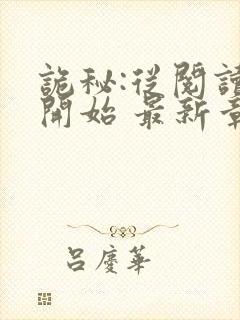 詭秘:從閱讀
開始 最新章
呂慶華